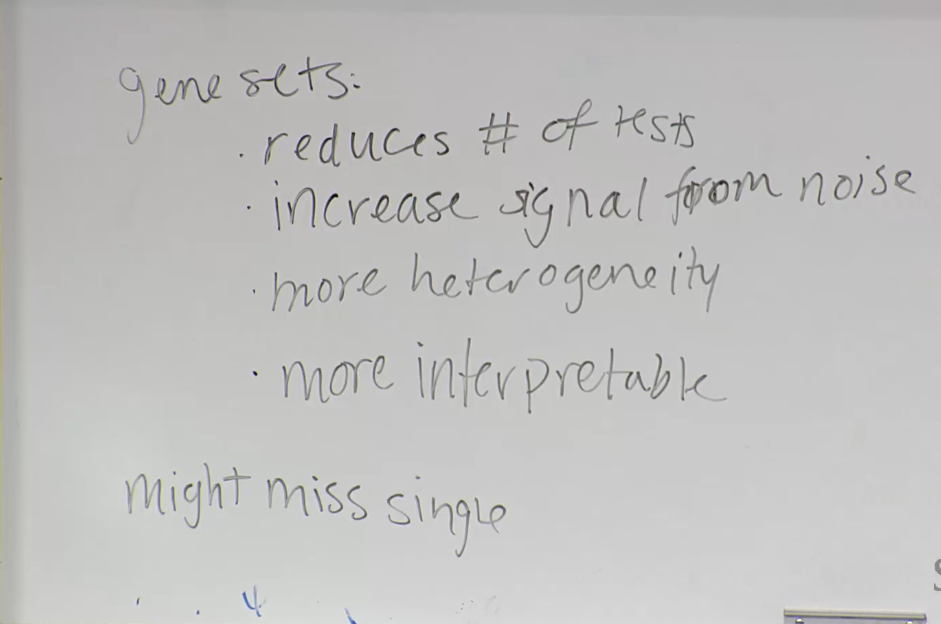 gene sets:
· reduces # of tests
· increase signal from noise
· more heterogeneity
· more interpretable
might miss single